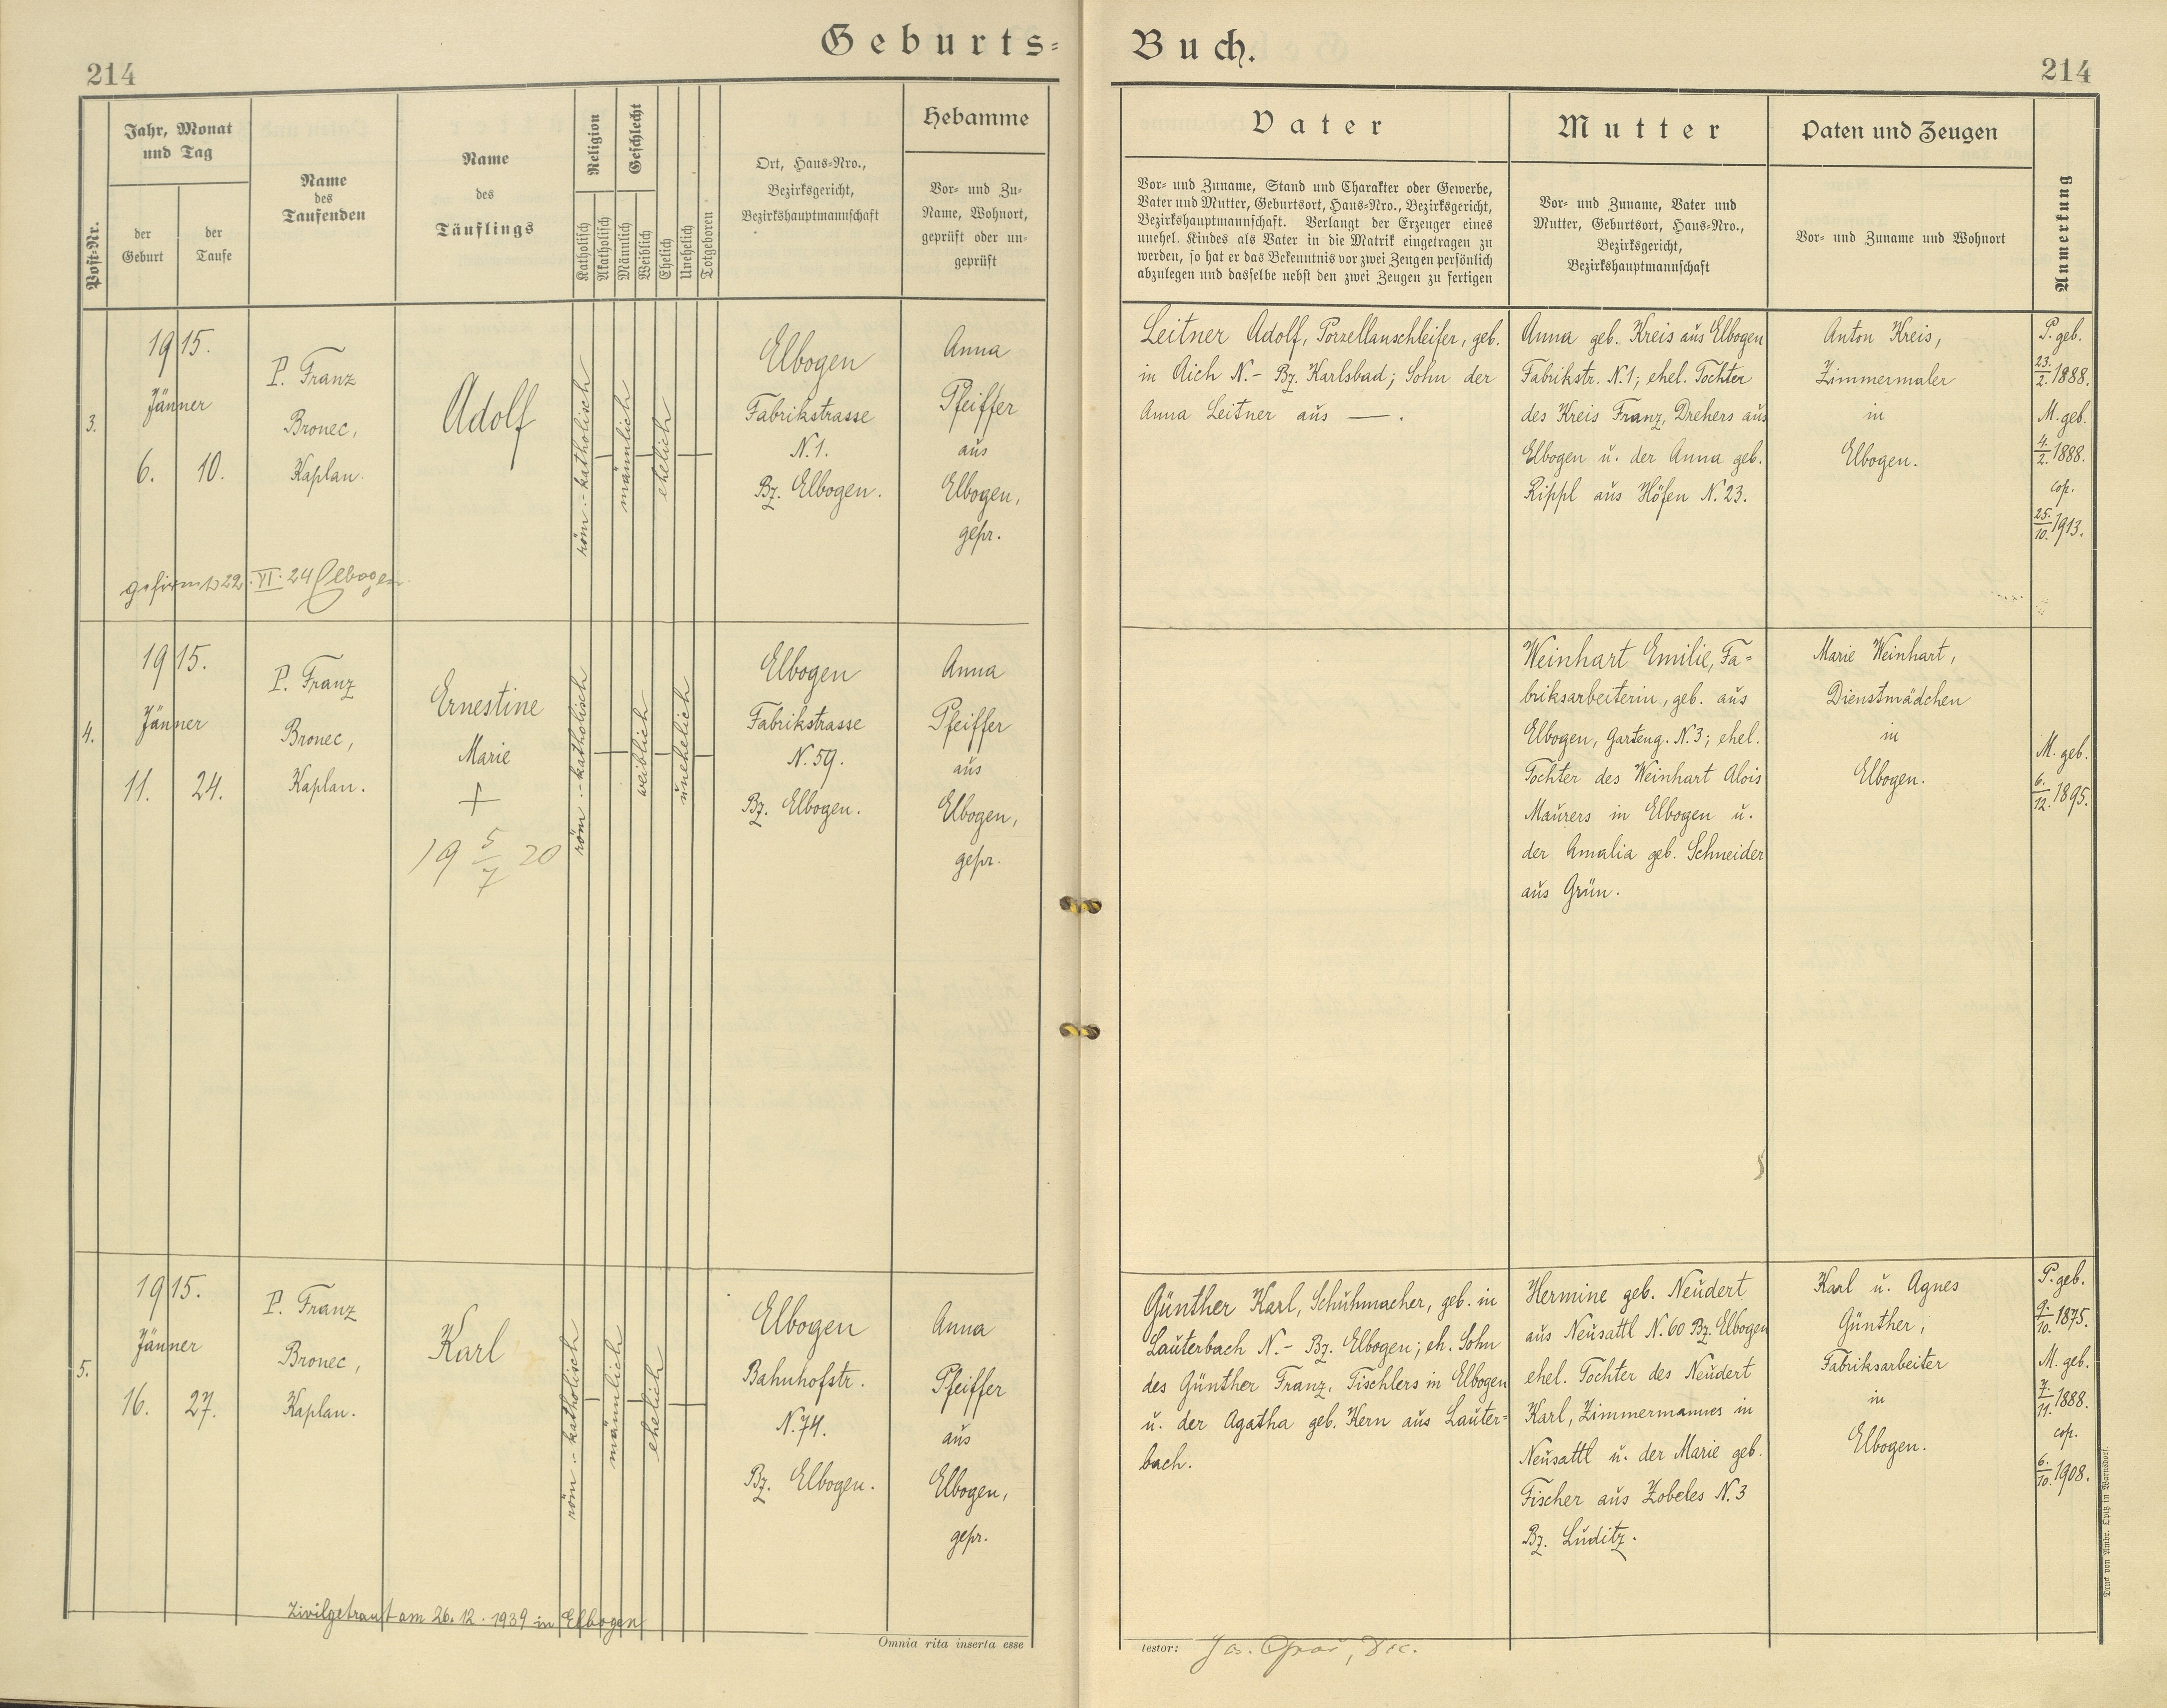 Geburts=Buch.
214
214
Post-Nr.
Jahr, Monat
und Tag
der
Geburt
der
Taufe
Name
des
Taufenden
Name
des
Täuflings
Religion
Katholisch
Akatholisch
Geschlecht
Männlich
Weiblich
Ehelich
Unehelich
Totgeboren
Ort, Haus=Nro.,
Bezirksgericht,
Bezirkshauptmannschaft
Hebamme
Vor= und Zu=
Name, Wohnort,
geprüft oder un=
geprüft
Vater
Vor= und Zuname, Stand und Charakter oder Gewerbe,
Vater und Mutter, Geburtsort, Haus=Nro., Bezirksgericht,
Bezirkshauptmannschaft. Verlangt der Erzeuger eines
unehel. Kindes als Vater in die Matrik eingetragen zu
werden, so hat er das Bekenntnis vor zwei Zeugen persönlich
abzulegen und dasselbe nebst den zwei Zeugen zu fertigen
Mutter
Vor= und Zuname, Vater und
Mutter, Geburtsort, Haus=Nro.,
Bezirksgericht,
Bezirkshauptmannschaft
Paten und Zeugen
Vor= und Zuname und Wohnort
Anmerkung
3.
1915.
Jänner
6. 10.
P. Franz
Bronec,
Kaplan.
Adolf
röm.-katholisch
männlich
ehelich
Elbogen
Fabrikstrasse
N.1.
Bz. Elbogen.
Anna
Pfeiffer
aus
Elbogen,
gepr.
gefirmt 22.VI.24 Elbogen.
Leitner Adolf, Porzellanschleifer, geb.
in Aich N.- Bz. Karlsbad; Sohn der
Anna Leitner aus — .
Anna geb. Kreis aus Elbogen
Fabrikstr. N.1; ehel. Tochter
des Kreis Franz, Drehers aus
Elbogen u. der Anna geb.
Rippl aus Höfen N.23.
Anton Kreis,
Zimmermaler
in
Elbogen.
P. geb.
23./2. 1888.
M. geb.
4./2. 1888.
cop.
25./10. 1913.
4.
1915.
Jänner
11. 24.
P. Franz
Bronec,
Kaplan.
Ernestine
Marie
+
19 5/7 20
röm.-katholisch
weiblich
unehelich
Elbogen
Fabrikstrasse
N.59.
Bz. Elbogen.
Anna
Pfeiffer
aus
Elbogen,
gepr.
Weinhart Emilie, Fa=
briksarbeiterin, geb. aus
Elbogen, Garteng. N.3; ehel.
Tochter des Weinhart Alois
Maurers in Elbogen u.
der Amalia geb. Schneider
aus Grün.
Marie Weinhart,
Dienstmädchen
in
Elbogen.
M. geb.
6./12. 1895.
5.
1915.
Jänner
16. 27.
P. Franz
Bronec,
Kaplan.
Karl
röm.-katholisch
männlich
ehelich
Elbogen
Bahnhofstr.
N.74.
Bz. Elbogen.
Anna
Pfeiffer
aus
Elbogen,
gepr.
Zivilgetraut am 26.12.1939 in Elbogen
Günther Karl, Schuhmacher, geb. in
Lauterbach N.- Bz. Elbogen; eh. Sohn
des Günther Franz, Tischlers in Elbogen
u. der Agatha geb. Kern aus Lauter=
bach.
Hermine geb. Neudert
aus Neusattl N.60 Bz. Elbogen
ehel. Tochter des Neudert
Karl, Zimmermannes in
Neusattl u. der Marie geb.
Fischer aus Zobeles N.3
Bz. Luditz.
Karl u. Agnes
Günther,
Fabriksarbeiter
in
Elbogen.
P. geb.
9./10. 1875.
M. geb.
7./11. 1888.
cop.
6./10. 1908.
Omnia rita inserta esse
testor:
Druck von Ambr. Opitz in Warnsdorf.